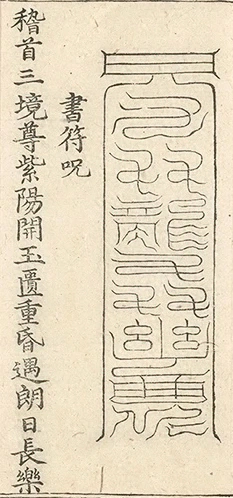 書符呪
稽首三境尊紫陽開玉匱重昏遇朗日長樂